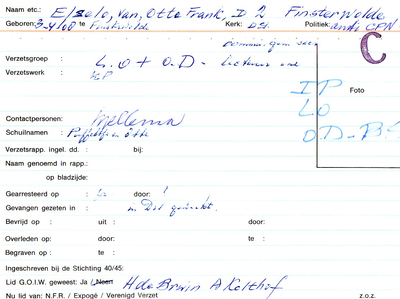 Naam etc.: Otto Frank, D 2 Finsterwolde
Geboren: 3-4-'08 te Finsterwolde Kerk: Politiek: CPN
C
Verzetsgroep : L.O + O.D -
Verzetswerk : KP
IP
LO
O.D-
Foto
Contactpersonen: Mellema
Schuilnamen : Otto
Verzetsrapp. ingel. dd. : bij:
Naam genoemd in rapp.:
op bladzijde:
Gearresteerd op : door:
Gevangen gezeten in : in Det
Bevrijd op : uit : door:
Overleden op: door: te :
Begraven op : te :
Ingeschreven bij de Stichting 40/45:
Lid G.O.I.W. geweest: Ja / Neen H de Bruin A Kolthof
Nu lid van: N.F.R. / Expogé / Verenigd Verzet z.o.z.